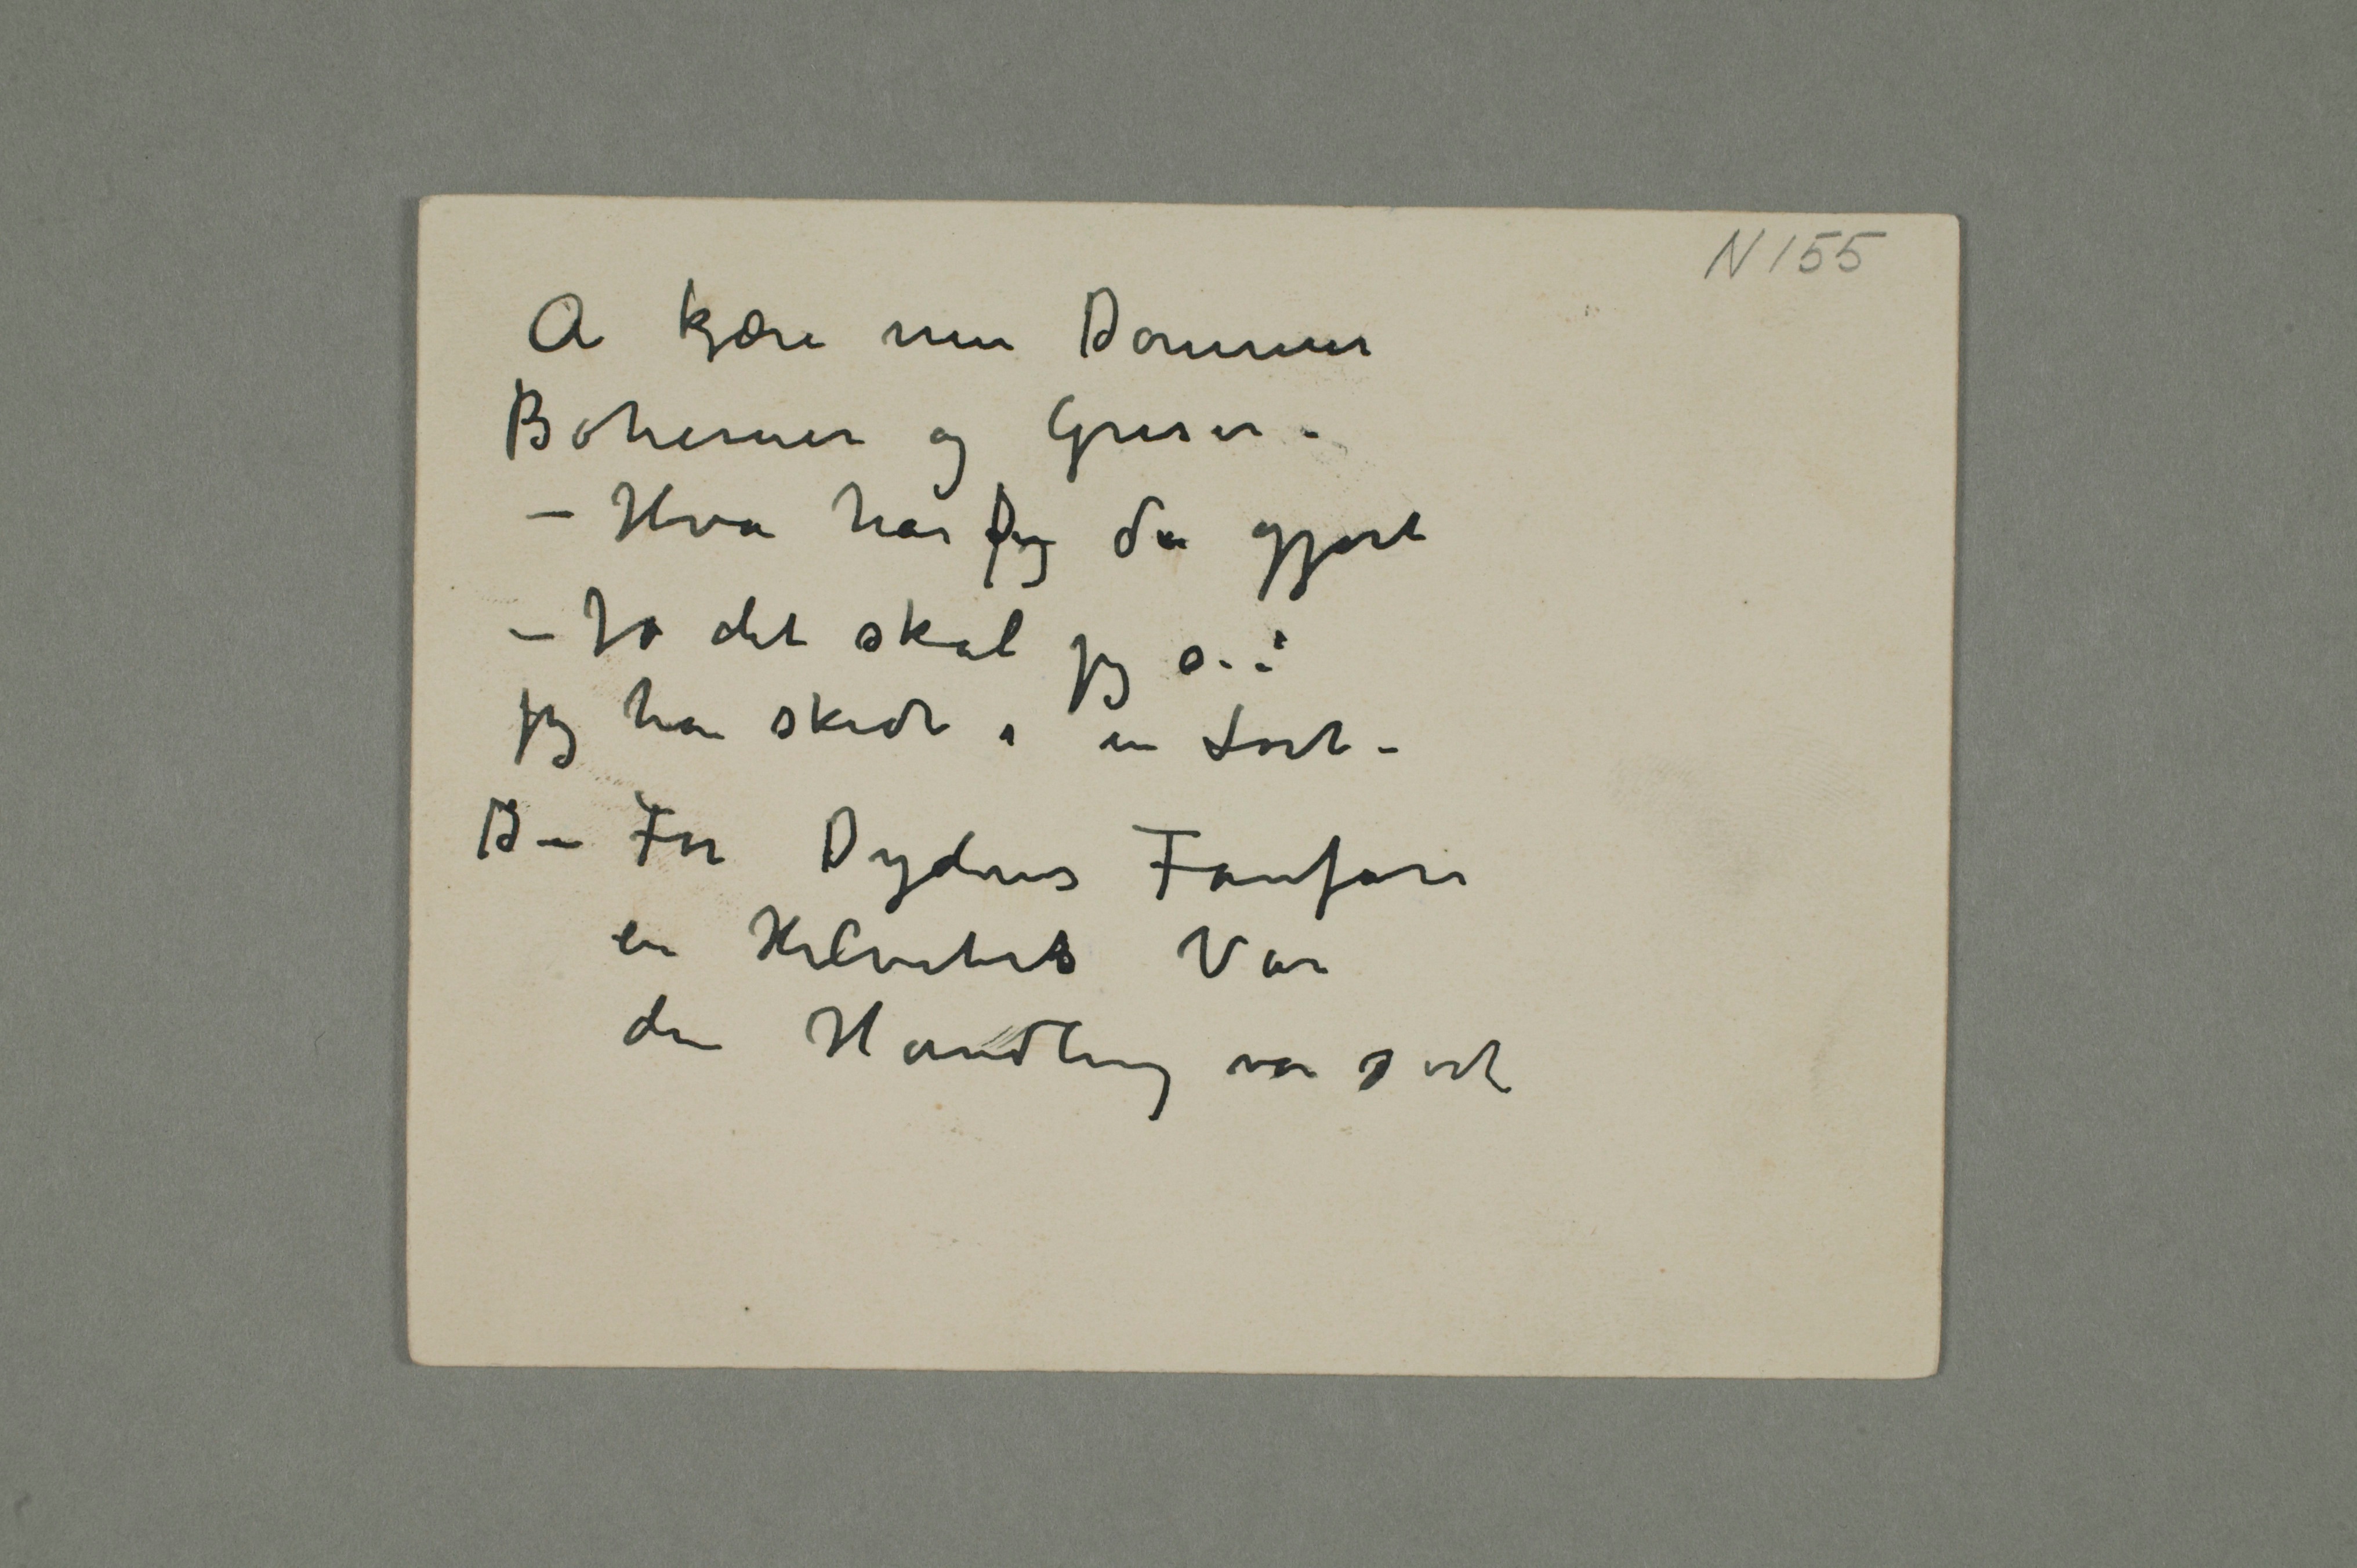 N 155
A kjære mine Dommer
Bohemer og Griser.
- Hva har Jeg da gjort
- Jo det skal jeg si:
jeg har skidt i en Lort -
B - For Dydens Fanfare
en Helvetets Var
den Handling var sort